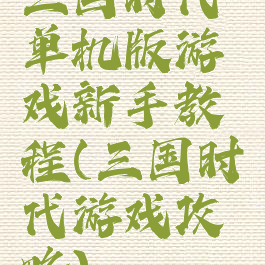 三国时代
单机版游
戏新手教
程(三国时
代游戏攻
略)